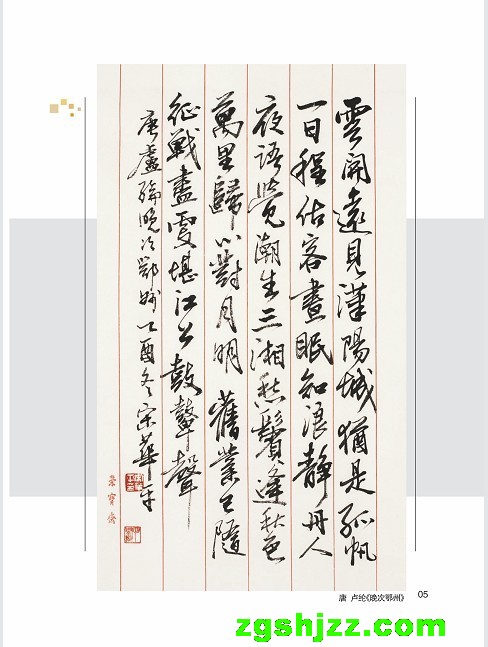 雲開遠見漢陽城猶是孤帆
一日程估客晝眠知浪靜舟人
夜語覺潮生三湘愁鬢逢秋色
萬里歸心對月明舊業已隨
征戰盡更堪江上鼓鼙聲
唐盧綸晚次鄂州乙酉冬宋華平
榮寶齋
唐 卢纶《晚次鄂州》 05
zgshjzz.com